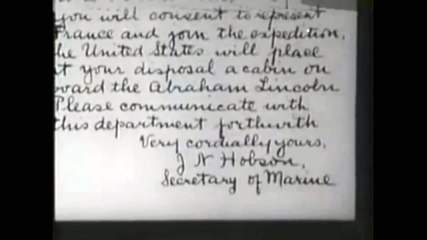 you will consent to represent
France and join the expedition,
he United States will place
at your disposal a cabin on
board the Abraham Lincoln
Please communicate with
this department forthwith
Very cordially yours,
J N Hobson,
Secretary of Marine